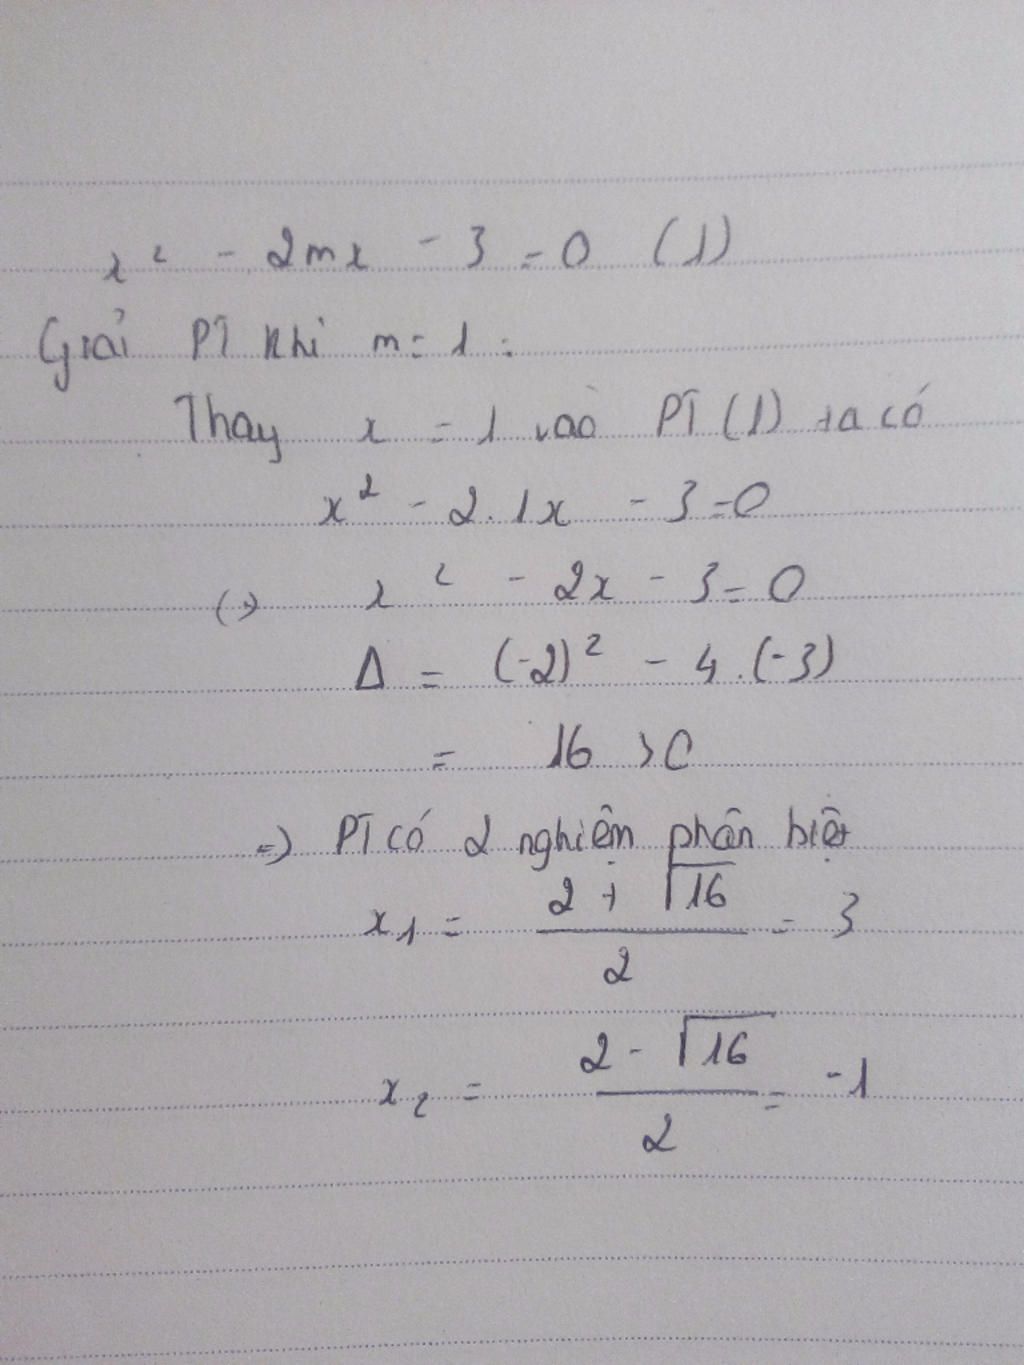 x² - 2mx - 3 = 0 (1)
Giải PT khi m = 1 :
Thay x = 1 vào PT (1) ta có
x² - 2.1x - 3 = 0
(=) x² - 2x - 3 = 0
Δ = (-2)² - 4.(-3)
= 16 > 0
=) PT có 2 nghiệm phân biệt
x₁ = (2 + √16)/2 = 3
x₂ = (2 - √16)/2 = -1